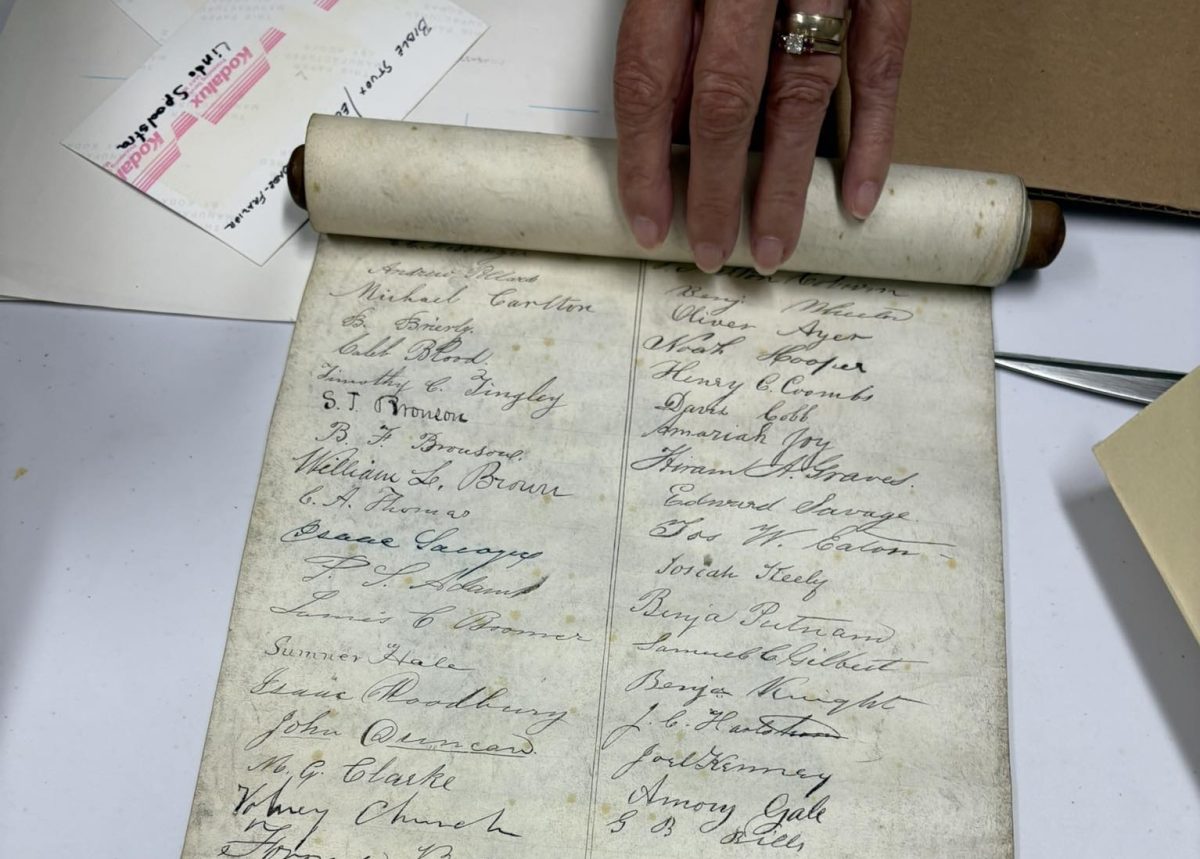 Kodalux
Kodalux
Linda Spoelstra
Bible Study
Andrew Pollard
Michael Carlton
B. Brierly.
Caleb Blood.
Timothy C. Tingley
S. T. Bronson
B. F. Bronson.
William L. Brown
C. A. Thomas
Isaac Sawyer
P. S. Adams
C Boomer
Sumner Hale
Isaac Woodbury
John Duncan.
M. G. Clarke
Volney Church
Benj. Wheeler
Oliver Ayer
Noah Hooper
Henry C. Coombs
David Cobb
Amariah Joy
Hiram A. Graves.
Edward Savage
Jos W. Eaton
Josiah Keely
Benja Putnam
Samuel C Gilbert
Benja Knight
J. C. Hartshorn
Joel Kenney
Amory Gale
G B Bills